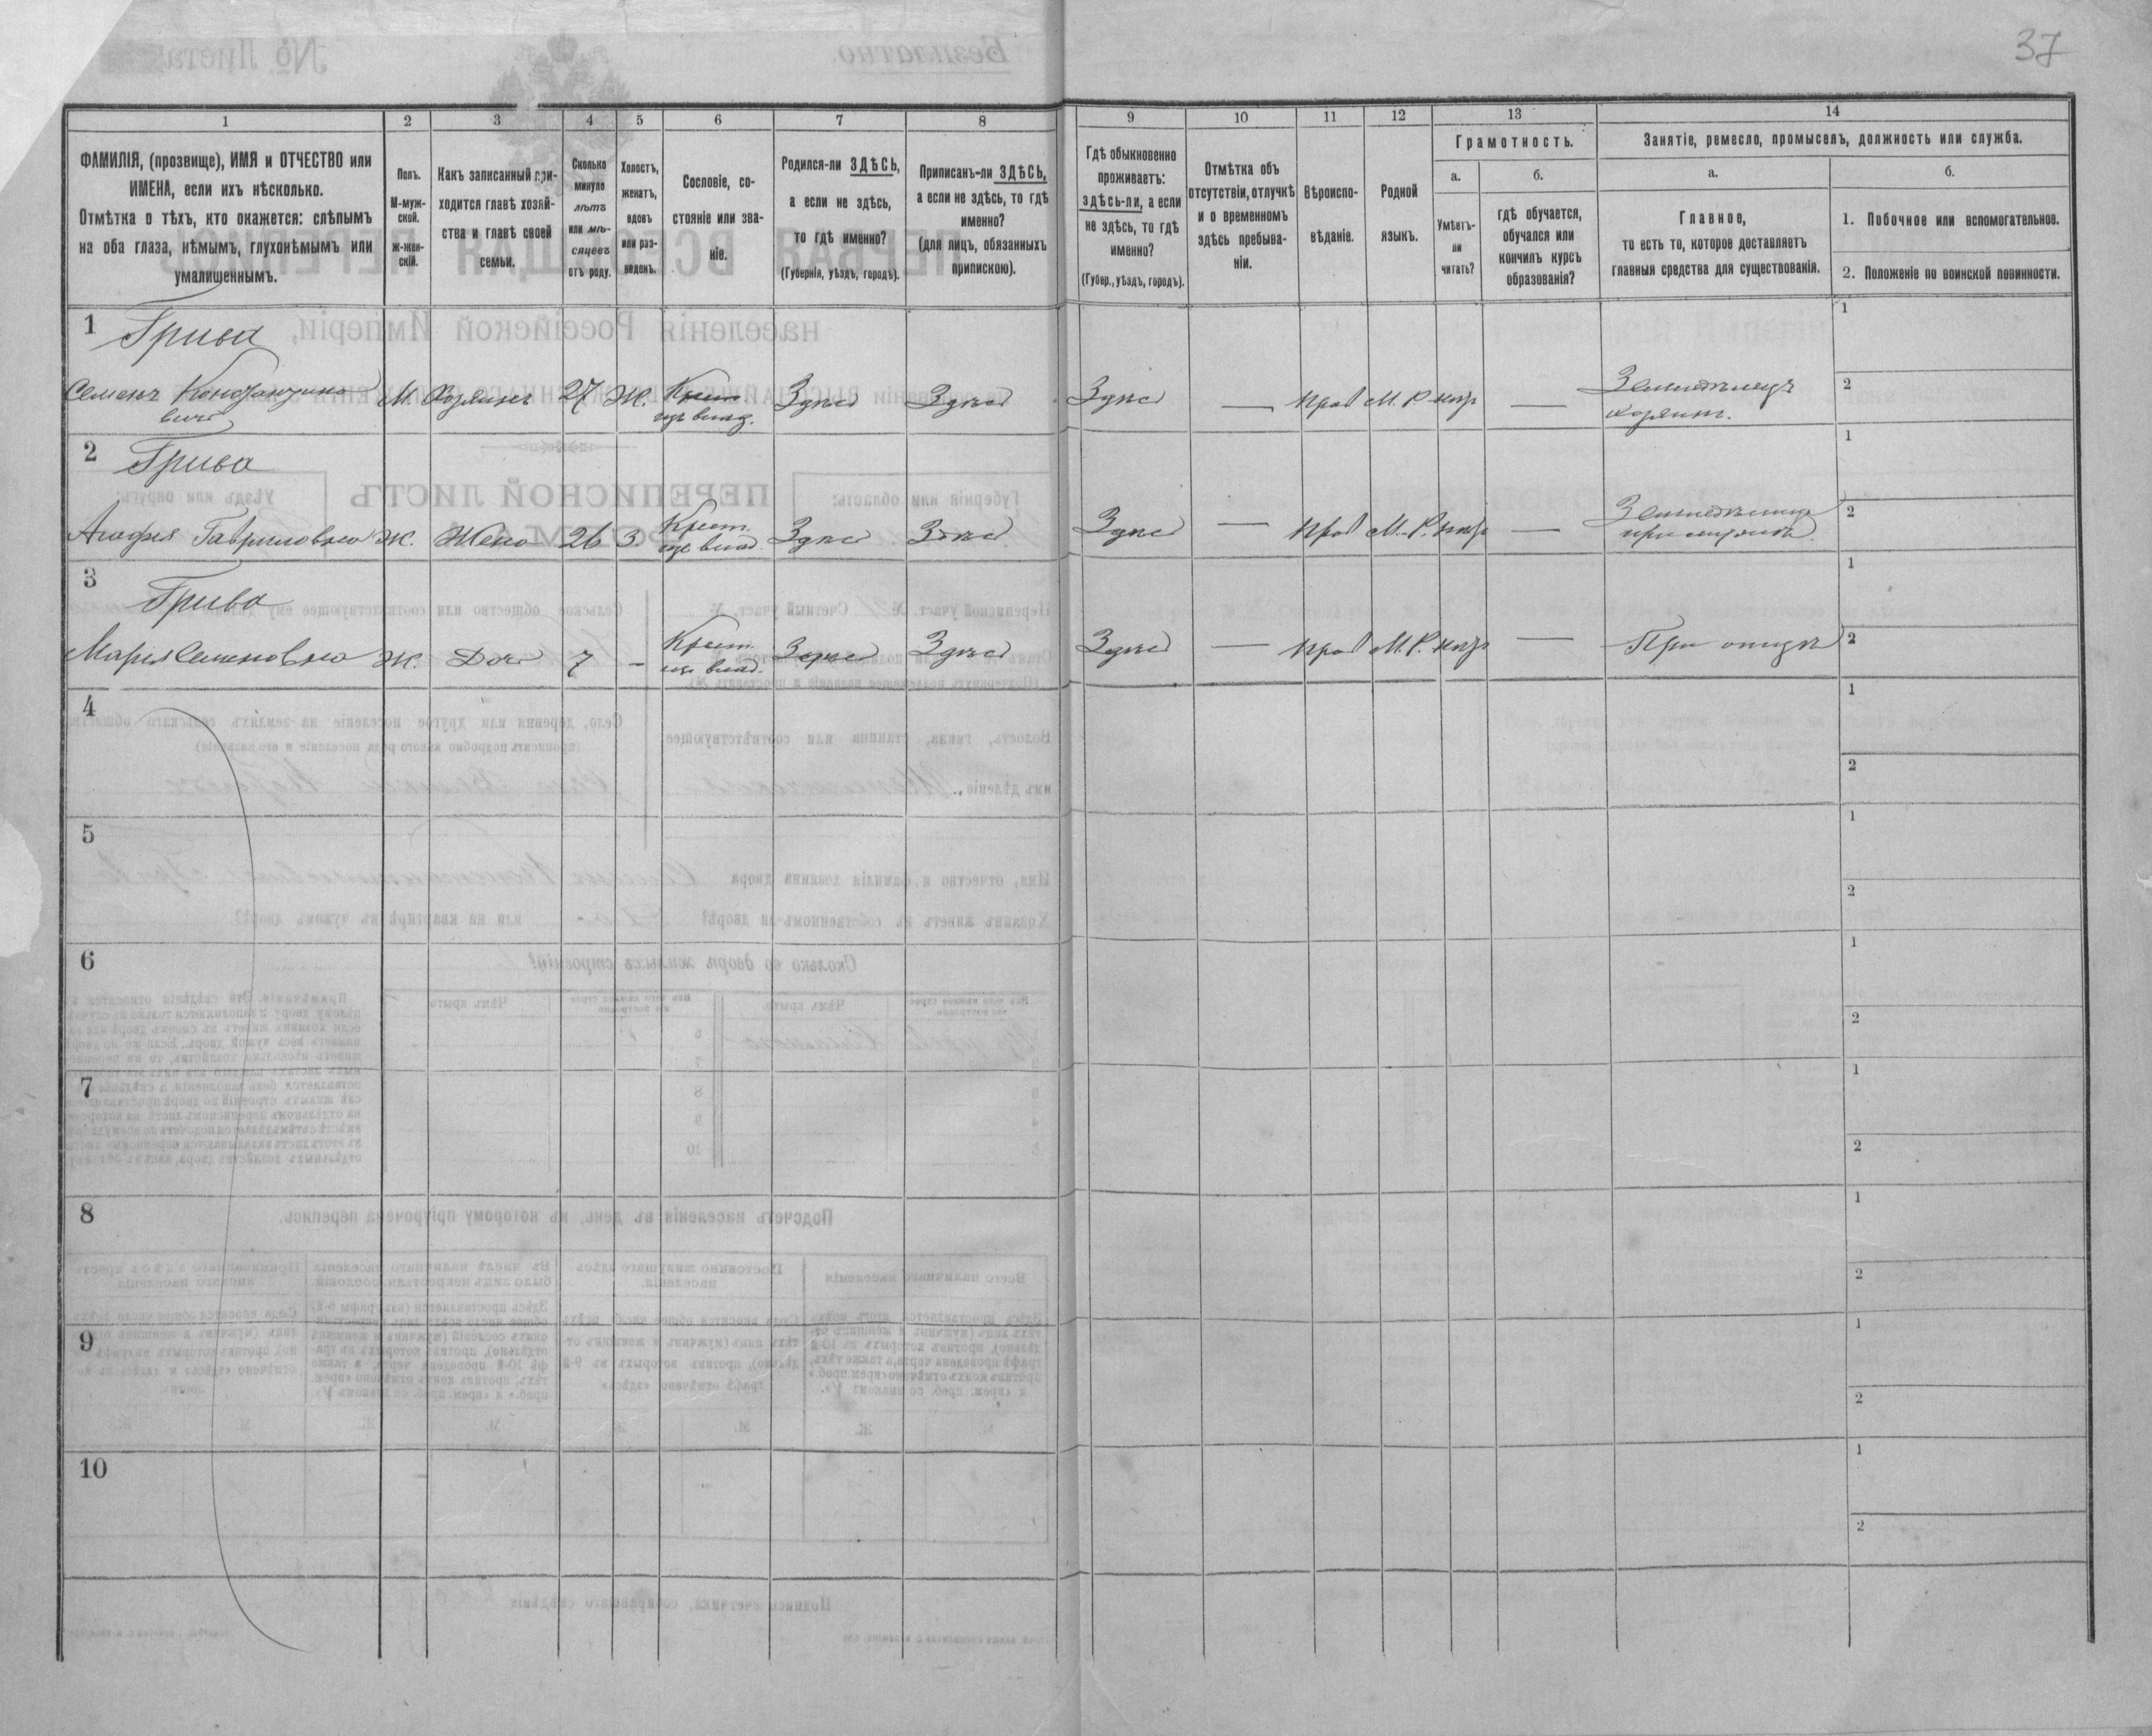 37
1 2 3 4 5 6 7 8 9 10 11 12 13 14
ФАМИЛІЯ, (прозвище), ИМЯ и ОТЧЕСТВО или
ИМЕНА, если ихъ нѣсколько.
Отмѣтка о тѣхъ, кто окажется: слѣпымъ
на оба глаза, нѣмымъ, глухонѣмымъ или
умалишеннымъ.
Полъ.
М-муж-
ской.
Ж-жен-
скій.
Какъ записанный при-
ходится главѣ хозяй-
ства и главѣ своей
семьи.
Сколько
минуло
лѣтъ
или мѣ-
сяцевъ
отъ роду.
Холостъ,
женатъ,
вдовъ
или раз-
веденъ.
Сословіе, со-
стояніе или зва-
ніе.
Родился-ли ЗДѢСЬ,
а если не здѣсь,
то гдѣ именно?
(Губернія, уѣздъ, городъ).
Приписанъ-ли ЗДѢСЬ,
а если не здѣсь, то гдѣ
именно?
(для лицъ, обязанныхъ
припискою).
Гдѣ обыкновенно
проживаетъ:
здѣсь-ли, а если
не здѣсь, то гдѣ
именно?
(Губер., уѣздъ, городъ).
Отмѣтка объ
отсутствіи, отлучкѣ
и о временномъ
здѣсь пребыва-
ніи.
Вѣроиспо-
вѣданіе.
Родной
языкъ.
Грамотность.
а.
Умѣетъ-
ли
читать?
б.
гдѣ обучается,
обучался или
кончилъ курсъ
образованія?
Занятіе, ремесло, промыселъ, должность или служба.
а.
Главное,
то есть то, которое доставляетъ
главныя средства для существованія.
б.
1. Побочное или вспомогательное.
2. Положеніе по воинской повинности.
1 Грива
Семенъ Константино
вичъ
М. Хозяинъ 27 Ж. Крест.
изъ влад.
Здѣсь Здѣсь Здѣсь — прав М. Р. нѣтъ —
Земледѣлецъ
хозяинъ.
1
2
2 Грива
Агафія Гавриловна Ж. Жена 26 З Крест.
изъ влад.
Здѣсь Здѣсь Здѣсь — прав М. Р. нѣтъ —
1
2
3 Грива
Марія Семеновна Ж. Дочь 7 — Крест.
изъ влад.
Здѣсь Здѣсь Здѣсь — прав М. Р. нѣтъ —
При отцѣ
1
2
4
1
2
5
1
2
6
1
2
7
1
2
8
1
2
9
1
2
10
1
2